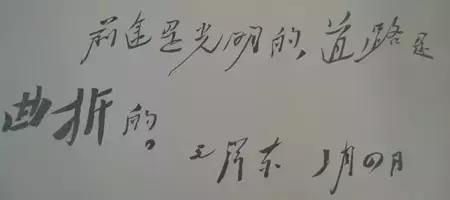 前途是光明的,道路是
曲折的。
毛泽东 1月04日